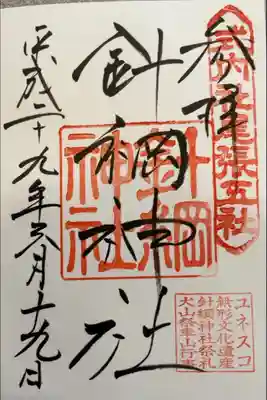 式内社尾張五社
参拝
針綱神社
針綱
神社
平成二十九年六月十九日
ユネスコ
無形文化遺産
針綱神社祭礼
犬山祭車山行事